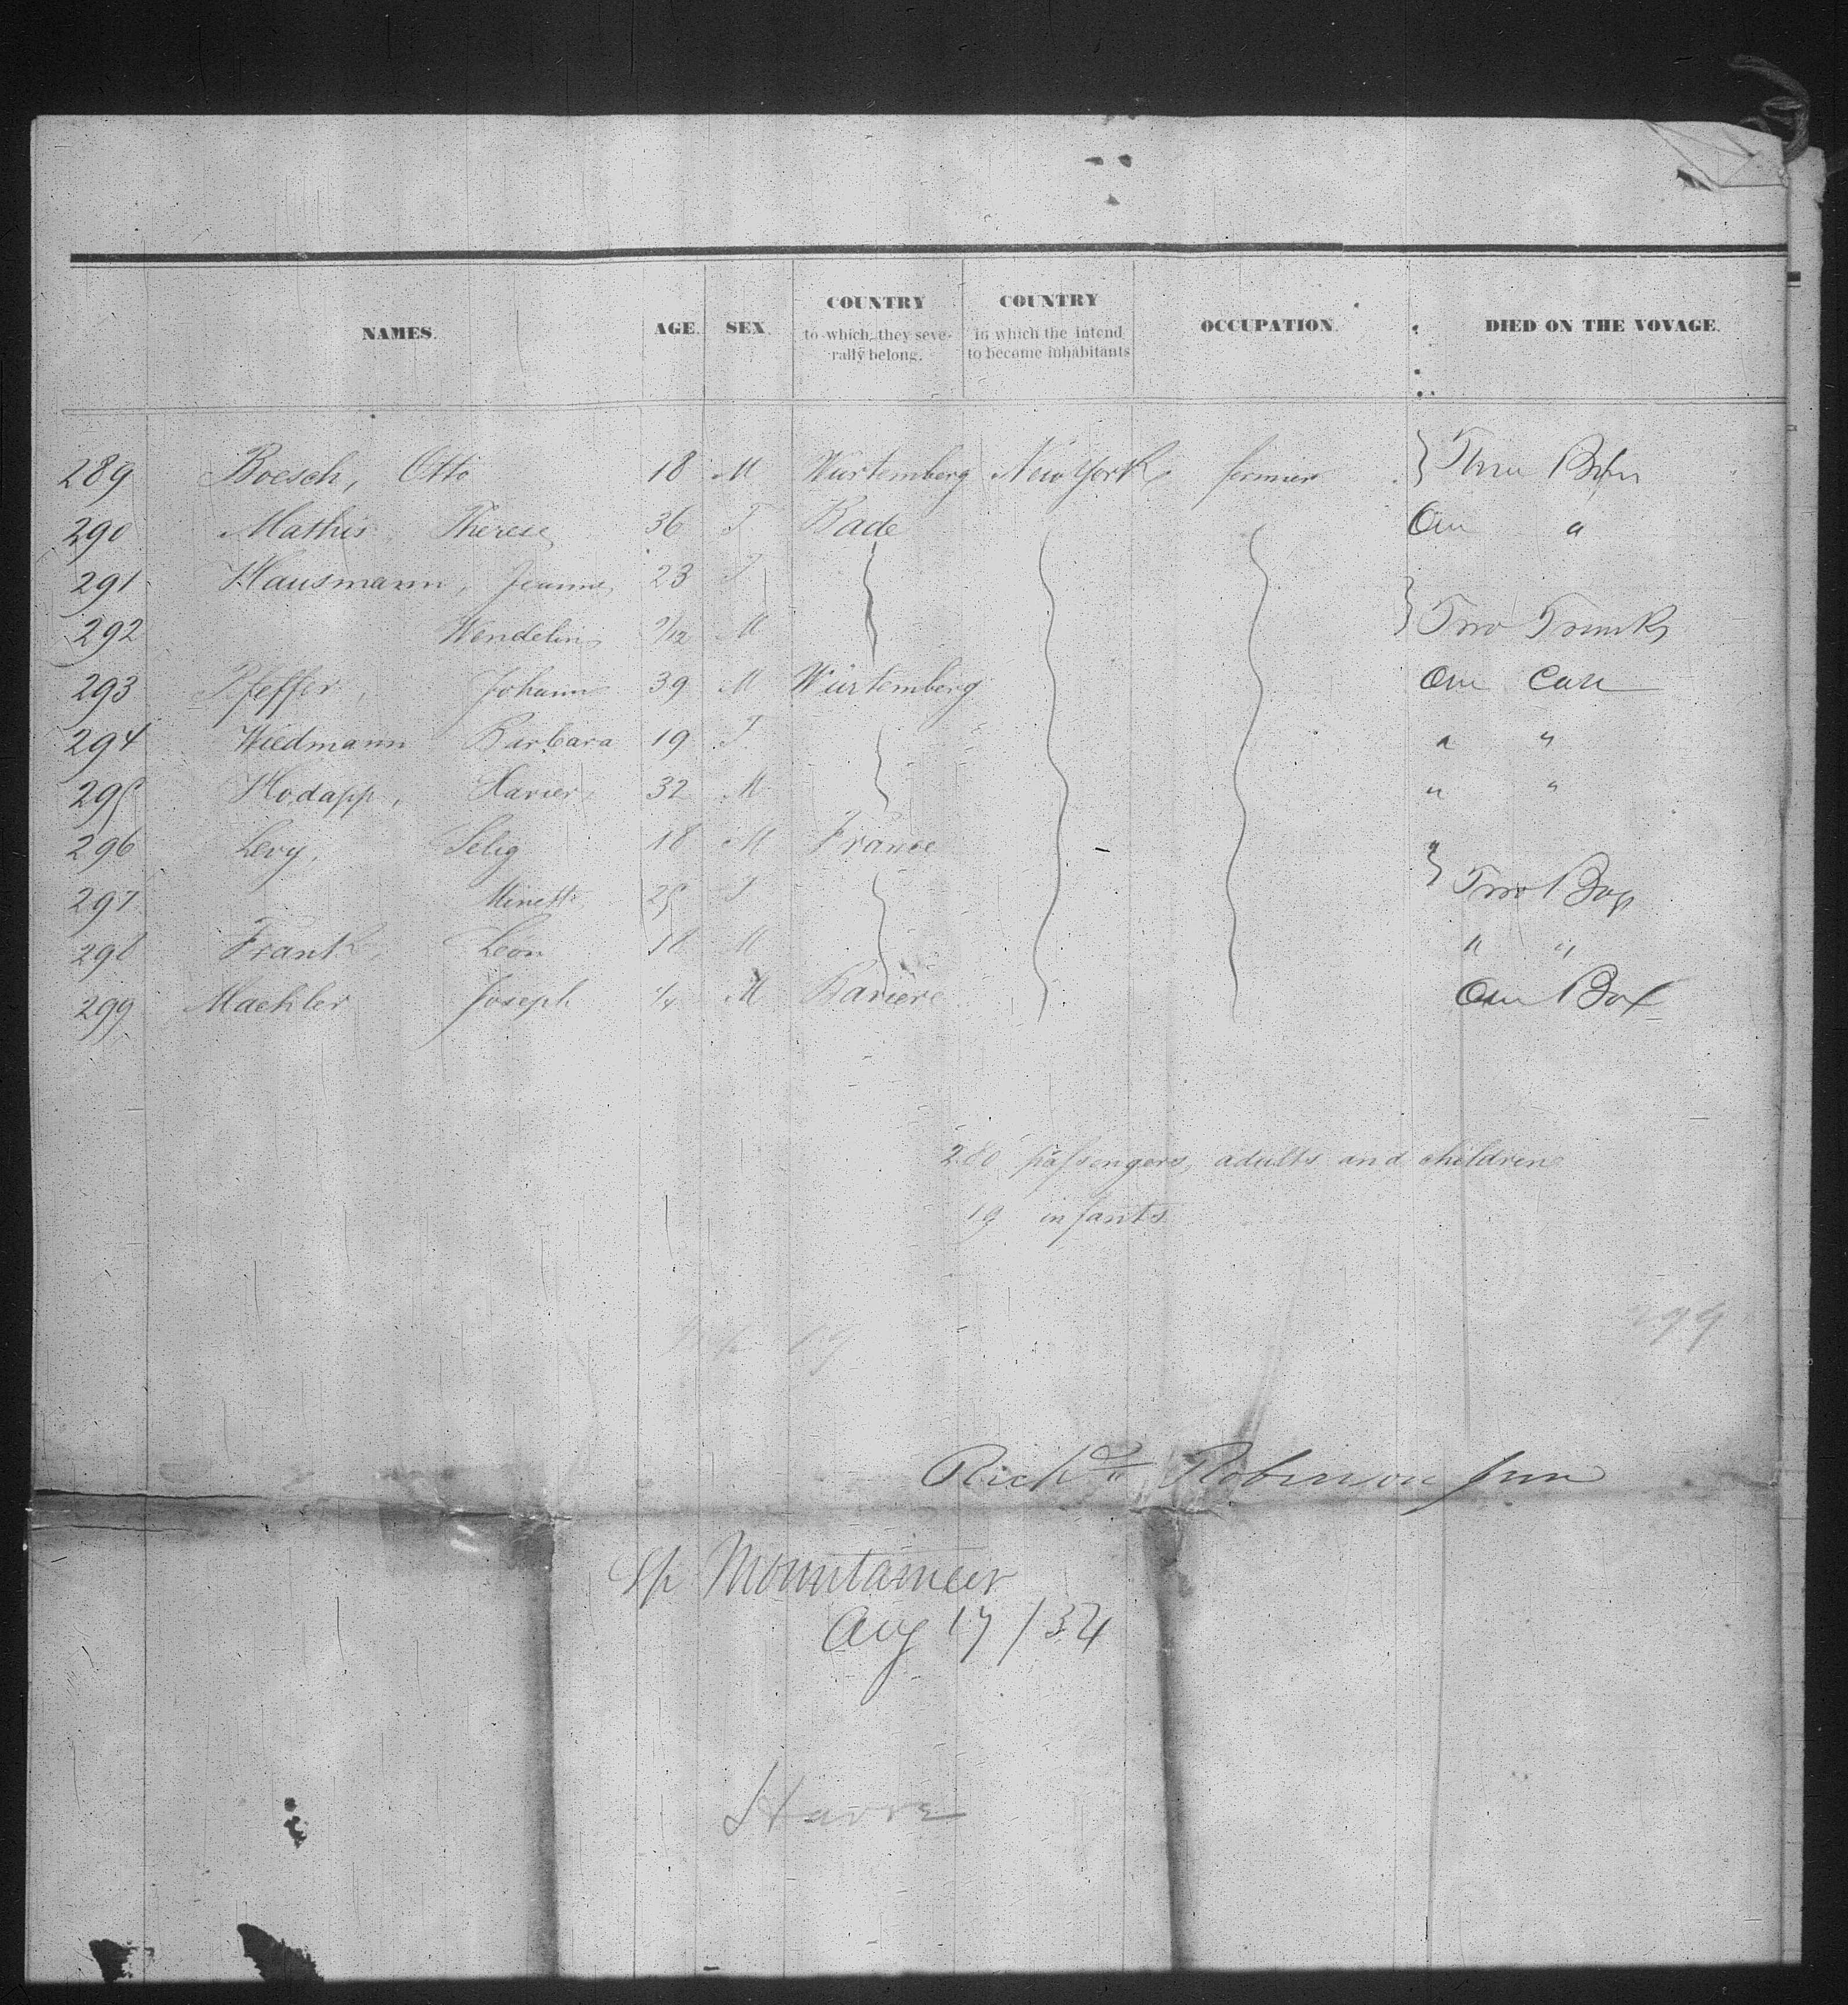 NAMES. AGE. SEX. COUNTRY to which they severally belong. COUNTRY in which the intend to become inhabitants OCCUPATION. DIED ON THE VOYAGE.
289 Boesch, Otto 18 M Wurtemberg New York farmer } Three Boxes
290 Mathis, Therese 36 F Bade One "
291 Hausmann, Jeanne 23 F
292 Wendelin /12 M } Two Trunks
293 Pfeffer, Johann 39 M Würtemberg One Case
294 Wiedmann Barbara 19 F " "
295 Hodapp, Xavier 32 M " "
296 Levy, Selig 18 M France "
297 Minette 25 F } Two Box
298 Frank, Leon 18 M " "
299 Maehler Joseph M Baviere One Box
280 passengers, adults and children
19 infants
299
Richd Robinson Jun
Sp Mountaineer
Aug 17 / 54
Havre